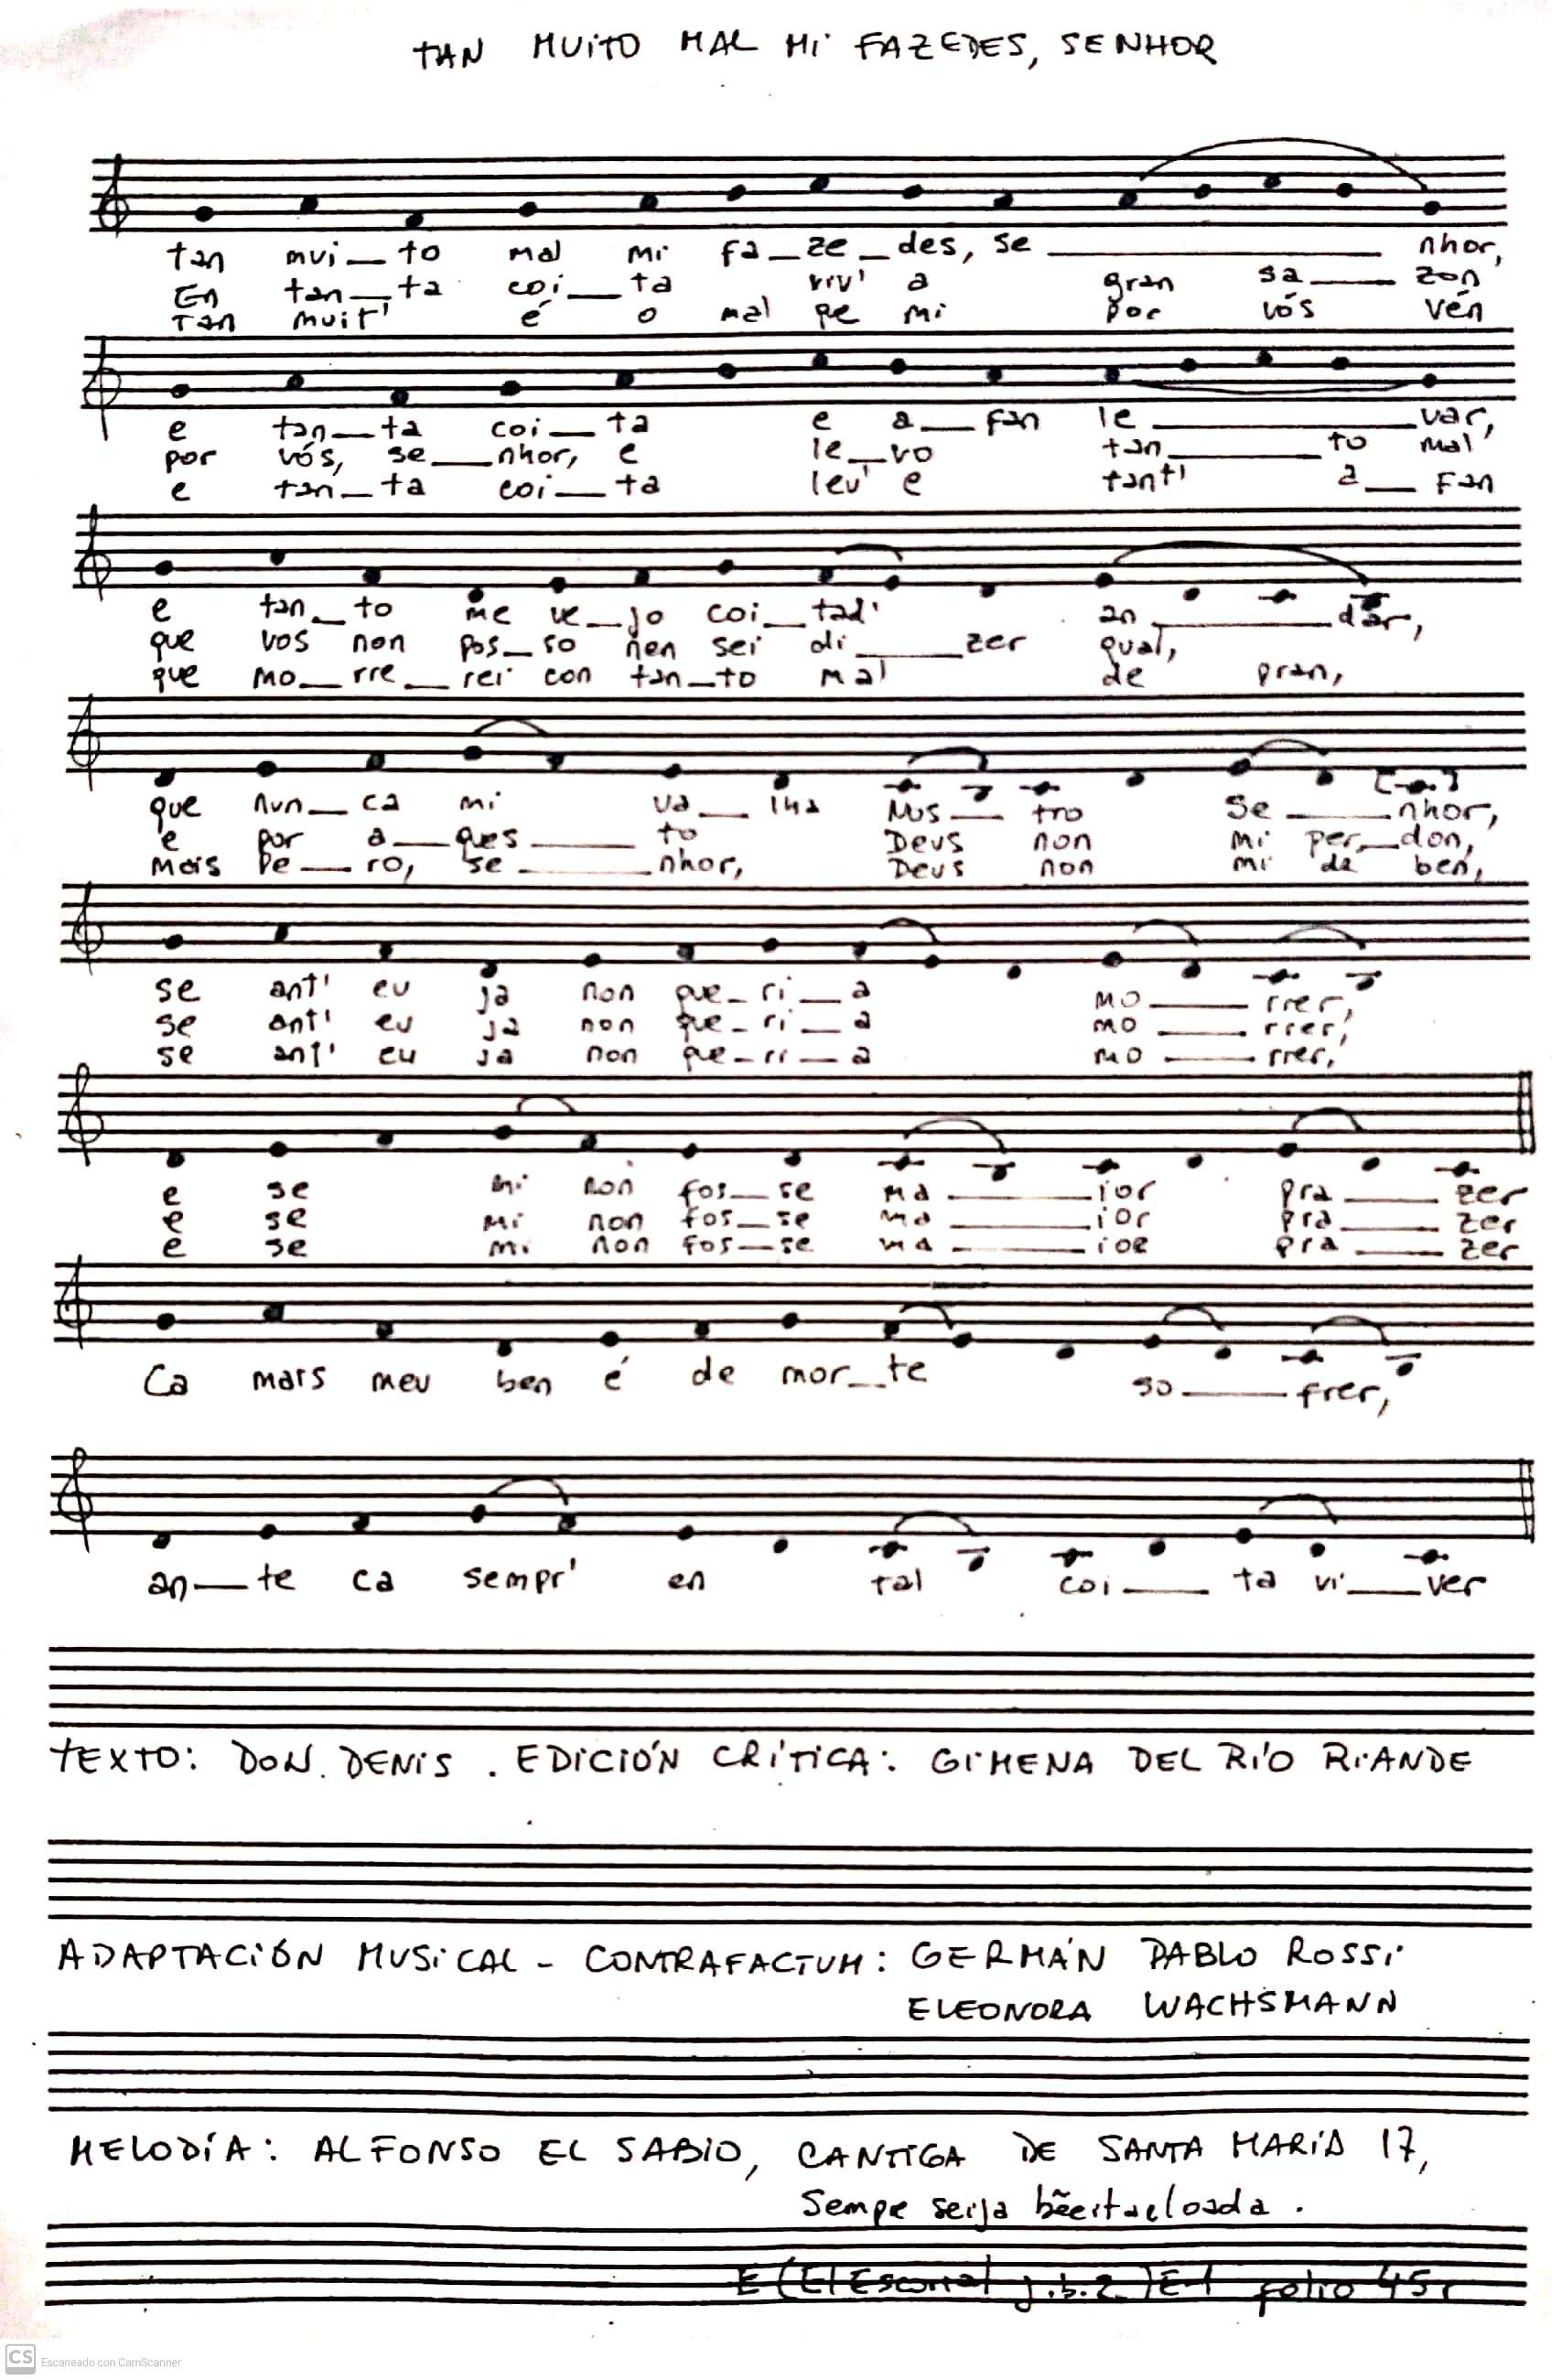 TAN MUITO MAL MI FAZEDES, SENHOR
tan mui_to mal mi fa_ze_des, se_nhor,
En tan_ta coi_ta viv' a gran sa_zon
Tan muit' é o mal qe mi por vós vén
e tan_ta coi_ta e a_fan le_var,
por vós, se_nhor, e le_vo tan_to mal
e tan_ta coi_ta lev' e tant' a_fan
e tan_to me ve_jo coi_tad' an_dar,
que vos non pos_so nen sei di_zer qual,
que mo_rre_rei con tan_to mal de pran,
que nun_ca mi va_lha Nos_tro Se_nhor,
e por a_ques_to Deus non mi per_don,
mais pe_ro, se_nhor, Deus non mi de ben,
se ant' eu ja non que_ri_a mo_rrer,
se ant' eu ja non que_ri_a mo_rrer,
se ant' eu ja non que_ri_a mo_rrer,
e se mi non fos_se ma_ior pra_zer
e se mi non fos_se ma_ior pra_zer
e se mi non fos_se ma_ior pra_zer
Ca mais meu ben é de mor_te so_frer,
an_te ca sempr' en tal coi_ta vi_ver
TEXTO: DON DENIS. EDICIÓN CRÍTICA: GIMENA DEL RÍO RIANDE
ADAPTACIÓN MUSICAL - CONTRAFACTUM: GERMÁN PABLO ROSSI
ELEONORA WACHSMANN
MELODÍA: ALFONSO EL SABIO, CANTIGA DE SANTA MARÍA 17,
Sempe seija bẽeita e loada.
E (El Escorial j.b.2) E1 folio 45r
CS Escaneado con CamScanner